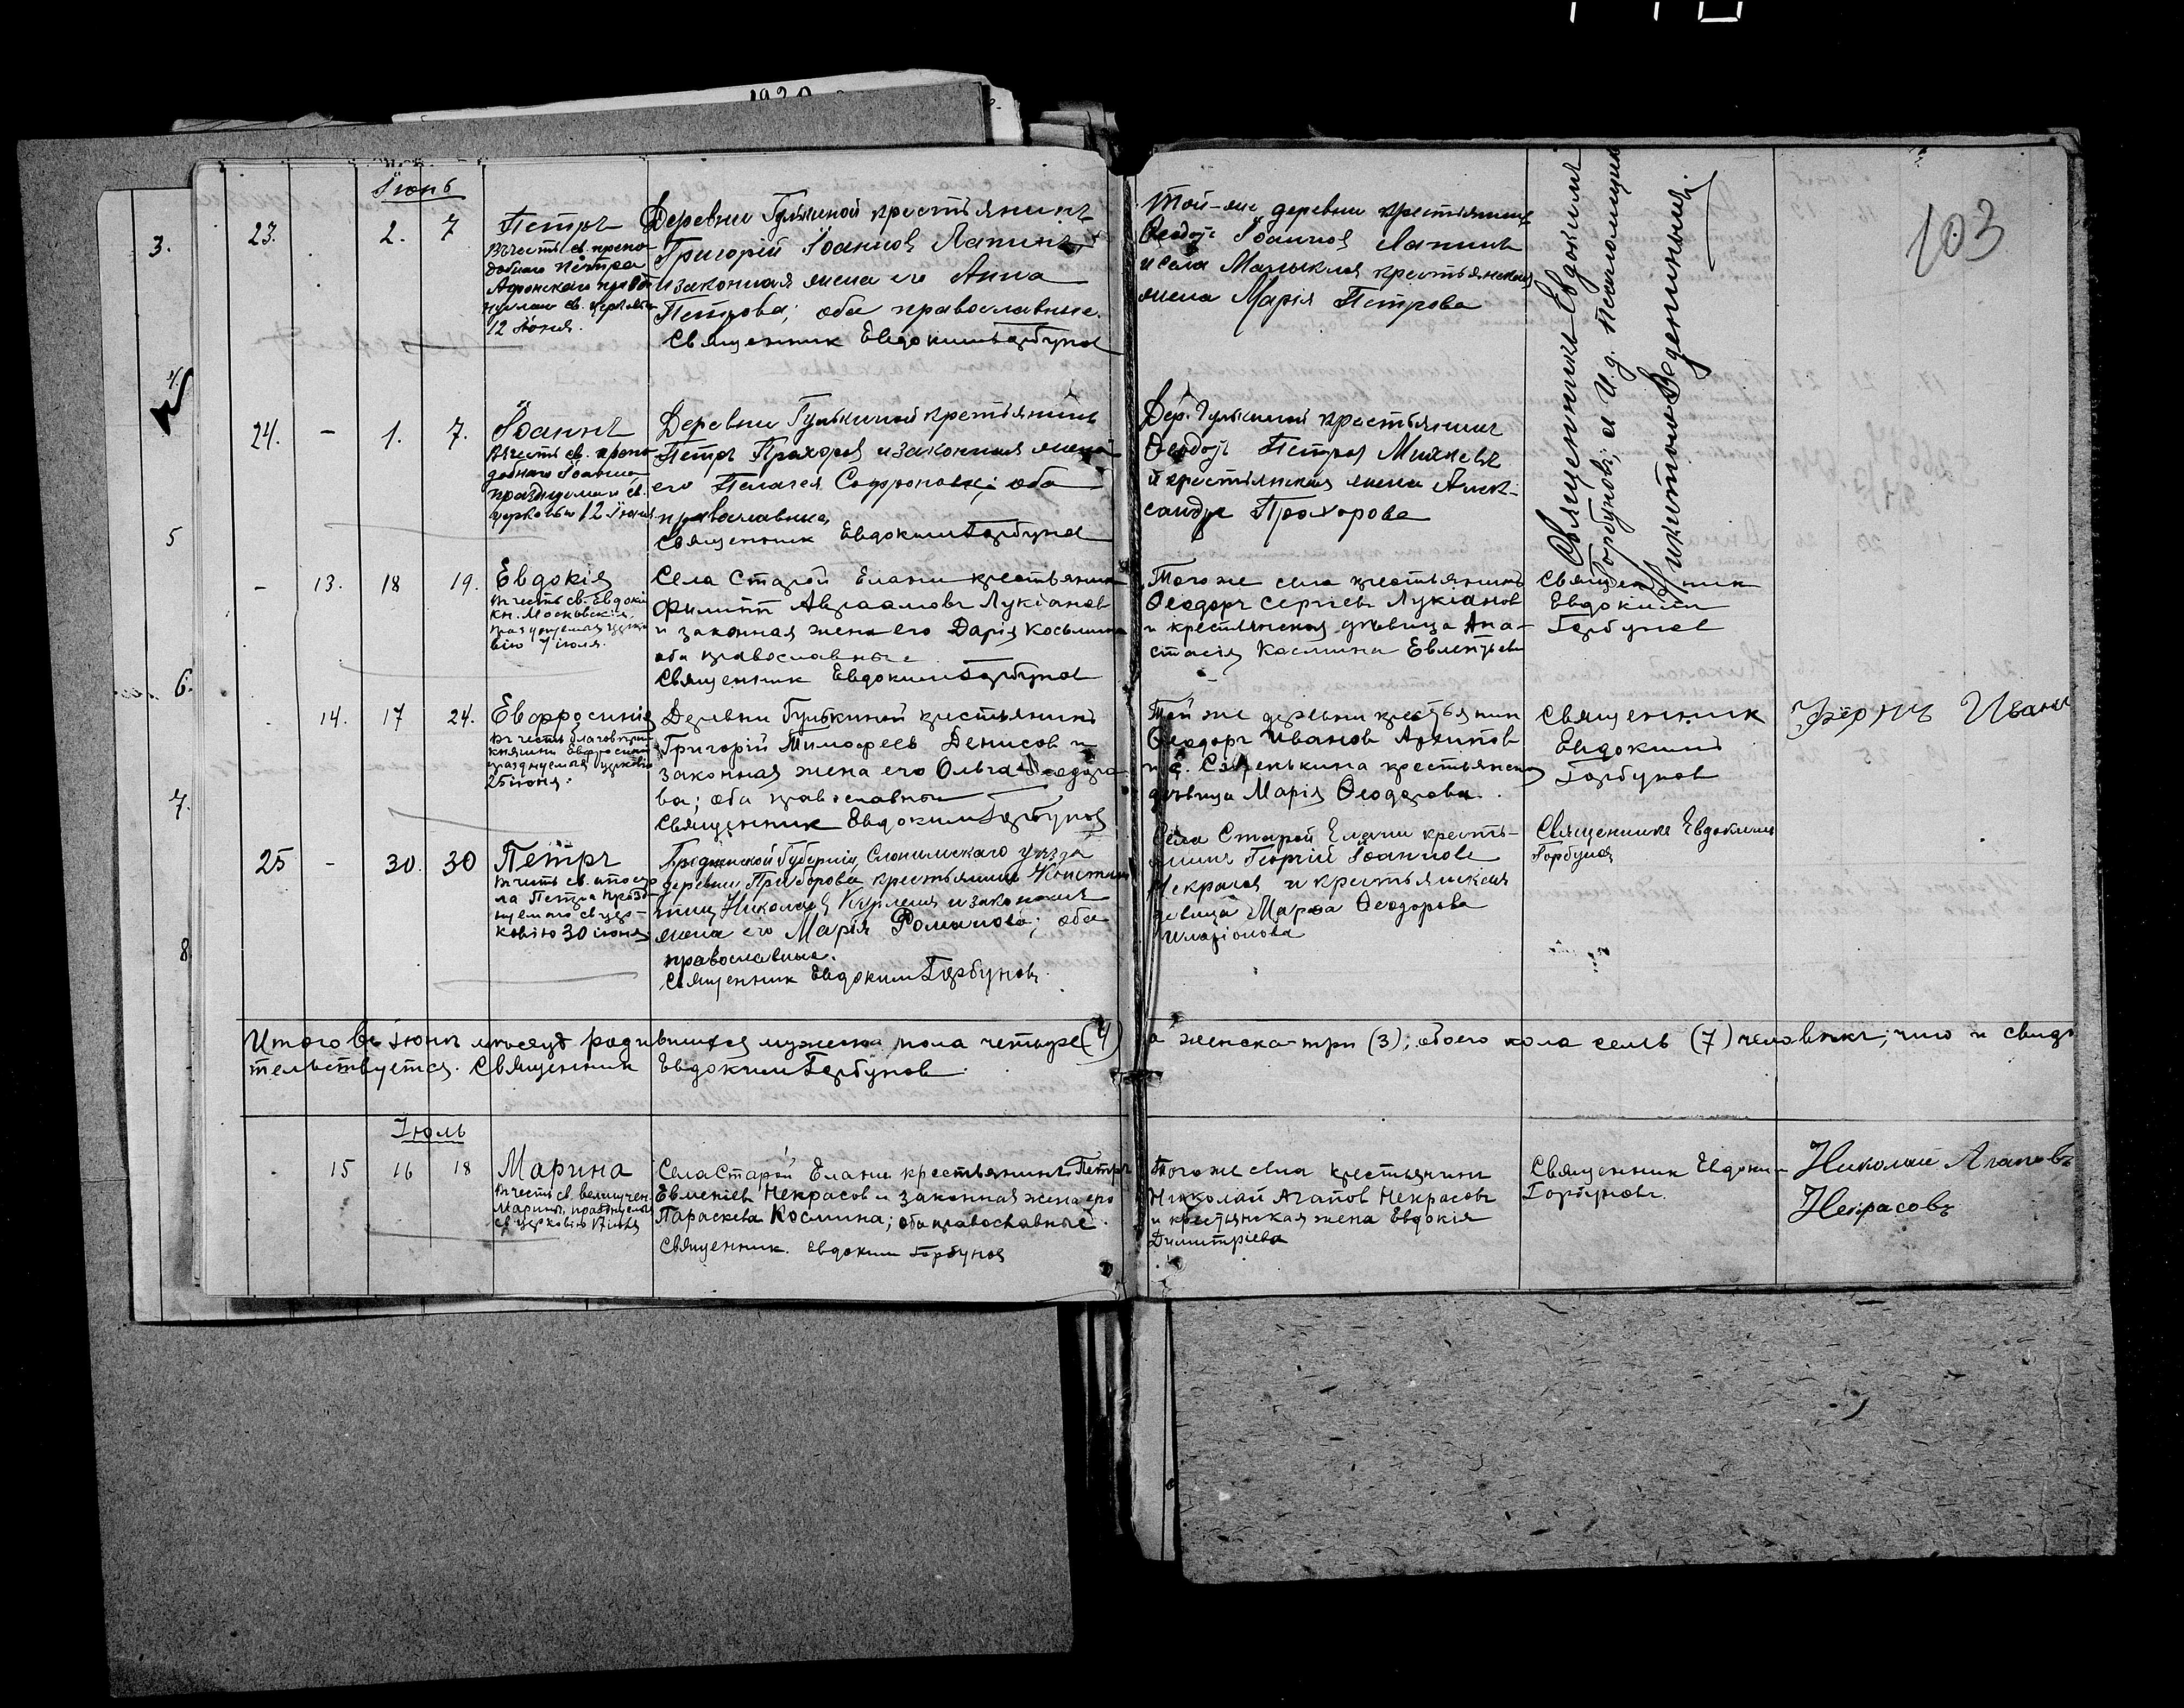 1920
103
Іюнь
23.
2. 7
Петръ
Въ честь св. препо-
добнаго Петра
Афонскаго празд-
нуемаго св. церковью
12 Іюня.
Деревни Гулькиной крестьянинъ
Григорій Іоанновъ Лапинъ
и законная жена его Анна
Петрова; оба православные.
Священник Евдоким Горбунов
Той-же деревни крестьянинъ
Ѳеодоръ Іоанновъ Лапинъ
и села крестьянская
жена Марія Петрова
Священникъ Евдокимъ
Горбуновъ; и И.д. псаломщика
24. - 1. 7.
Іоаннъ
Въ честь св. препо-
добнаго Іоанна
празднуемаго св.
церковью 12 Іюня
Деревни Гулькиной крестьянинъ
Петръ Прохоровъ и законная жена
его Пелагея Софронова; оба
православные
Священник Евдоким Горбунов
Дер. Гулькиной крестьянинъ
Ѳеодоръ Петровъ
и крестьянская жена Алек-
сандра Прохорова
- 13. 18 19.
Евдокія
Въ честь св. Евдокіи
кн. Московскія,
празднуемая церко-
вію 7 іюля.
Села Старой Елани крестьянинъ
Филиппъ Авраамовъ Лукіанов
и законная жена его Дарія Косьмина
оба православные
Священник Евдоким Горбунов
Того же села крестьянинъ
Ѳеодоръ Сергіевъ Лукіанов
и крестьянская дѣвица Ана-
стасія Космина
Священник
Евдокимъ
Горбунов
14. 17 24.
Евфросинія
Въ честь благовѣрн.
княгини Евфросиніи
празднуемыя церковію
25 іюня.
Деревни Гулькиной крестьянинъ
Григорій Тимофеев Денисов и
законная жена его Ольга Ѳеодоро-
ва; оба православные
Священник Евдоким Горбунов
Той же деревни крестьянин
Ѳеодоръ Иванов Архипов
и с. крестьянская
дѣвица Марія Ѳеодорова.
Священник
Евдокимъ
Горбунов
25 - 30. 30
Петръ
Въ честь св. апосто-
ла Петра празд-
нуемаго св. цер-
ковію 30 іюня
Гродненской губерніи, Слонимскаго уѣзда
деревни Приборова крестьянинъ Констан-
тинъ Николаевъ и законная
жена его Марія Романова; оба
православные.
Священник Евдоким Горбуновъ.
Села Старой Елани кресть-
янинъ Георгій Іоанновъ
Некрасов и крестьянская
девица Марѳа Ѳеодорова
Иларіонова
Священникъ Евдокимъ
Горбунов
Итого въ іюнѣ мѣсяцѣ родившихся мужска пола четыре (4) а женска-три (3); обоего пола семь (7) человѣкъ; что и свидѣ-
тельствуется. Священник Евдоким Горбунов.
Іюль
15 16 18
Марина
Въ честь св. великомучен.
Марины, празднуемыя
св. церковію 17 іюля
Села Старой Елани крестьянинъ Петръ
Евменіев Некрасов и законная жена его
Параскева Космина; оба православные.
Священник. Евдоким Горбунов
Того же села крестьянинъ
Николай Агапов Некрасовъ
и крестьянская жена Евдокія
Димитріева
Священник Евдоким
Горбуновъ.
Николай Агаповъ
Некрасовъ
3.
5
6.
7.
8